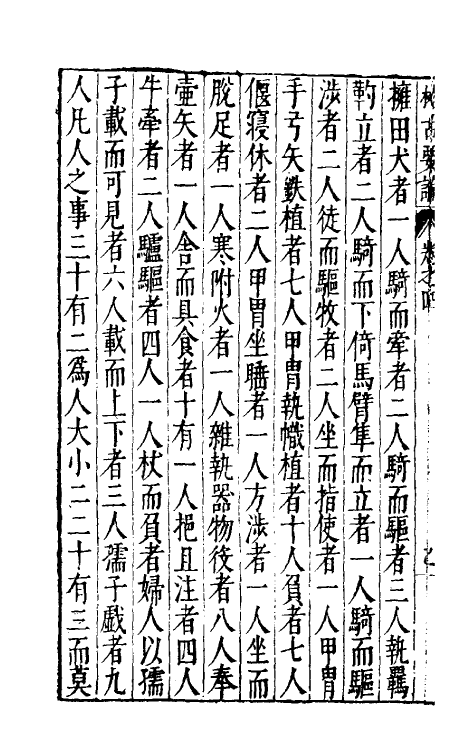 格古要論 卷之四
擁田犬者一人騎而牽者二人騎而驅者三人執羈
靮立者二人騎而下倚馬臂隼而立者一人騎而驅
涉者二人徒而驅牧者二人坐而指使者一人甲冑
手弓矢鈇植者七人甲冑執幟植者十人負者七人
偃寢休者二人甲冑坐睡者一人方涉者一人坐而
脫足者一人寒附火者一人雜執器物役者八人奉
壷矢者一人舎而具食者十有一人挹且注者四人
牛牽者二人驢驅者四人一人杖而負者婦人以孺
子載而可見者六人載而上下者三人孺子戲者九
人凡人之事三十有二爲人大小二二十有三而莫